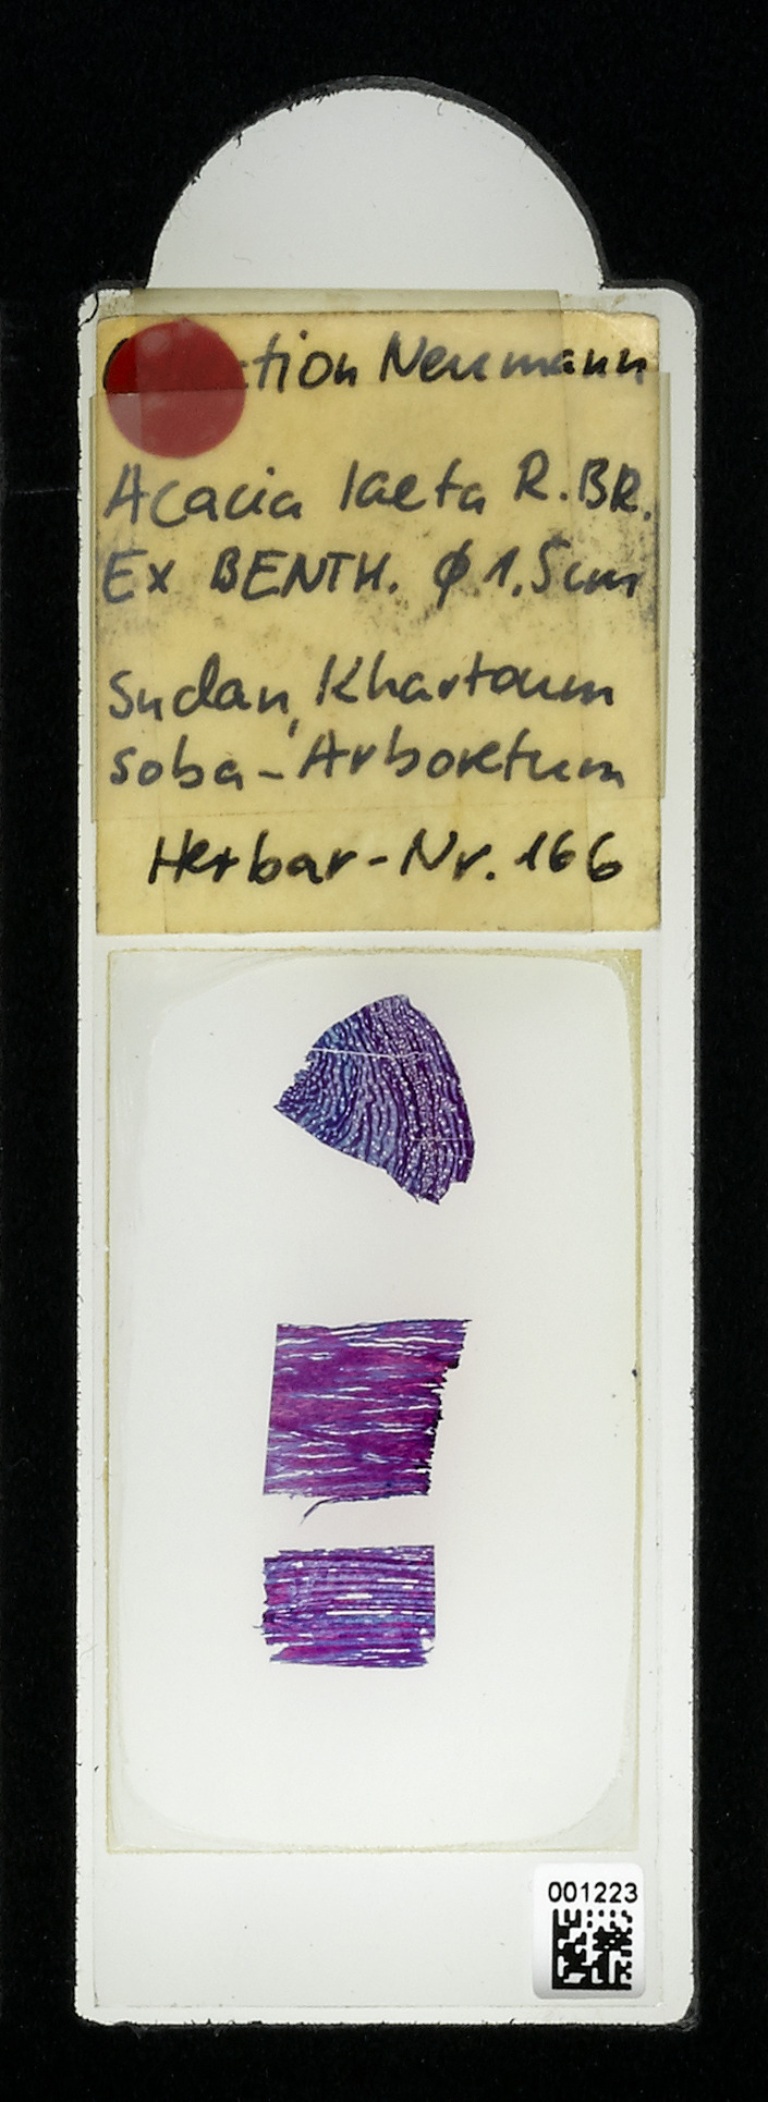 Neumann
Acacia laeta R.BR.
Ex BENTH. ϕ 1.5cm
Sudan, Khartoum
Soba-Arboretum
Herbar-Nr. 166
001223